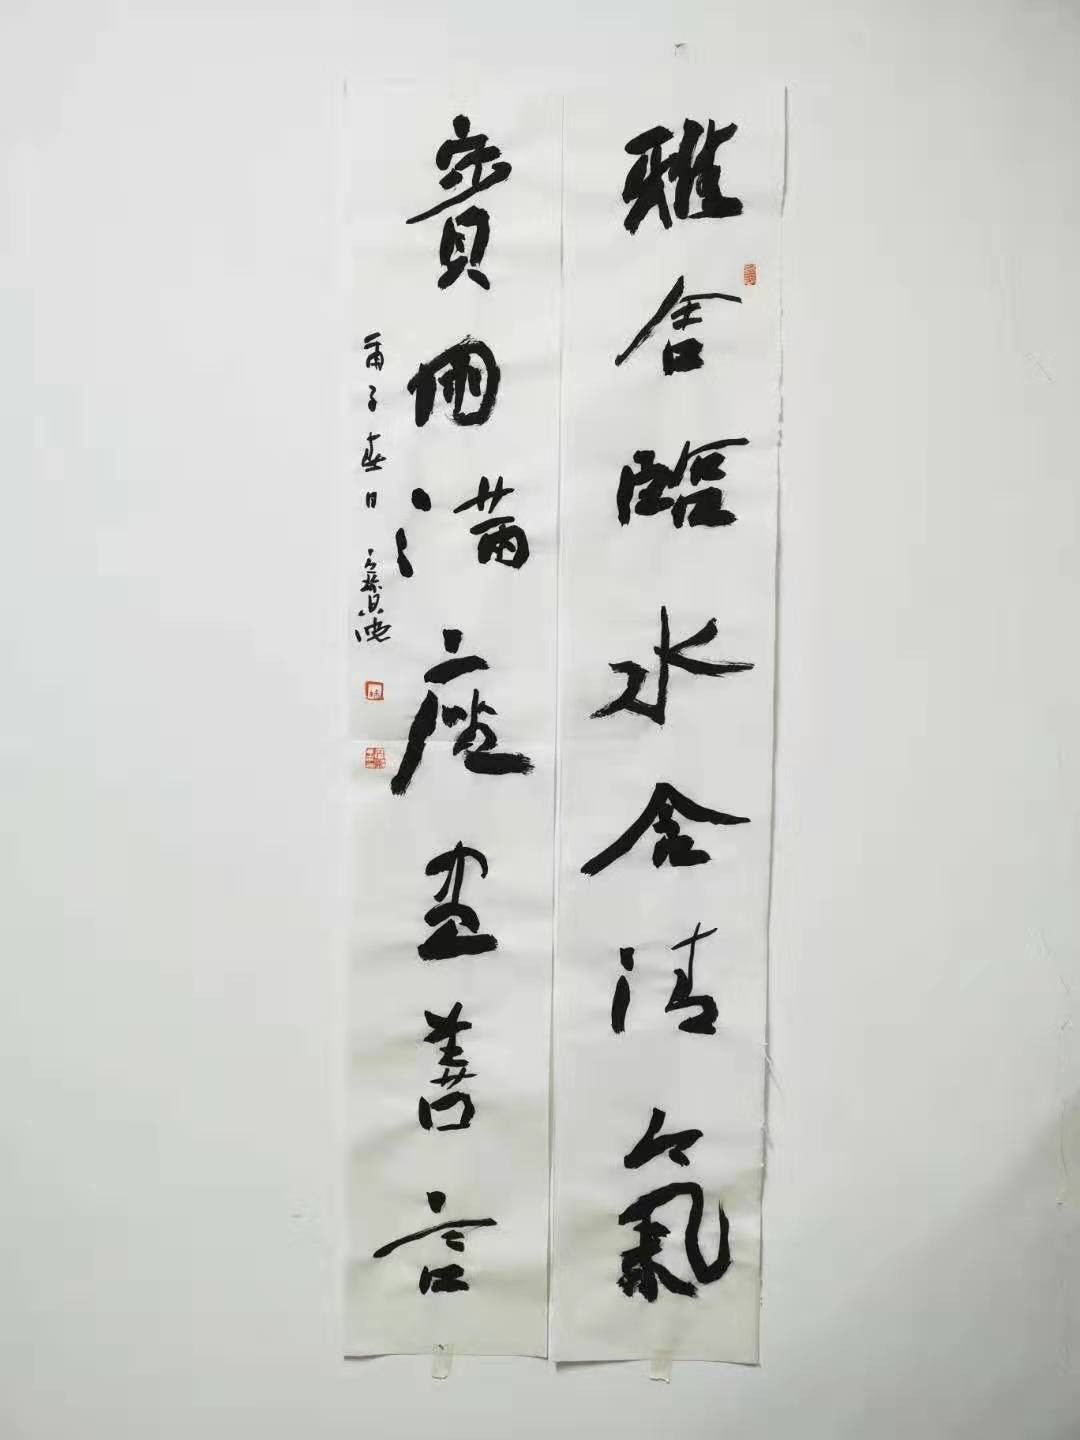 雅舍臨水含清氣
賓朋滿座盡善言
庚子春日